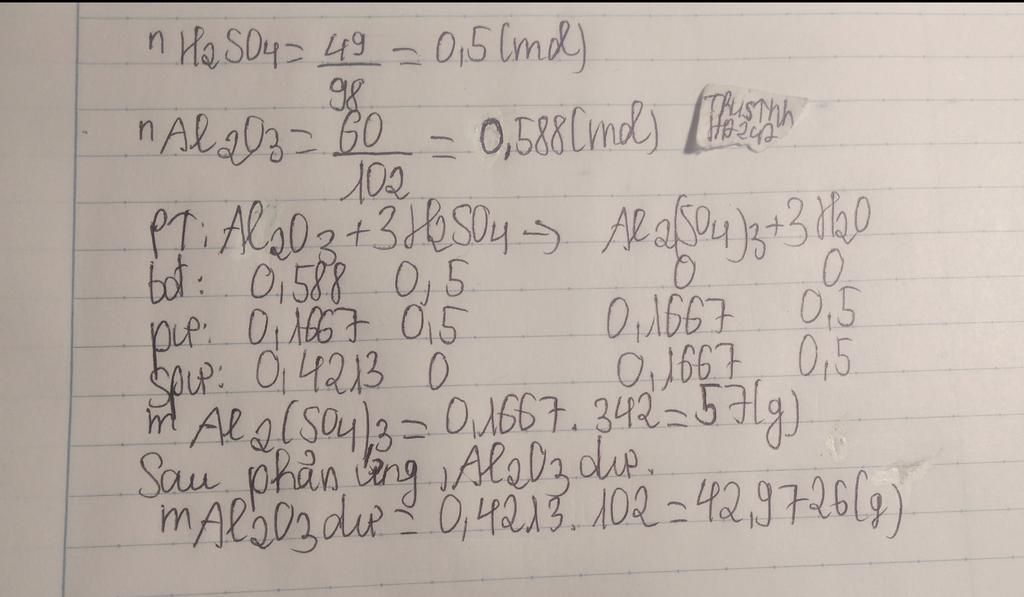 nH2SO4 = 49/98 = 0,5 (mol)
nAl2O3 = 60/102 = 0,588 (mol)
TRUSThh
HB242
PT: Al2O3 + 3H2SO4 → Al2(SO4)3 + 3H2O
bđ: 0,588 0,5 0 0
pư: 0,1667 0,5 0,1667 0,5
spư: 0,4213 0 0,1667 0,5
mAl2(SO4)3 = 0,1667 . 342 = 57 (g)
Sau phản ứng, Al2O3 dư.
mAl2O3 dư = 0,4213 . 102 = 42,9726 (g)